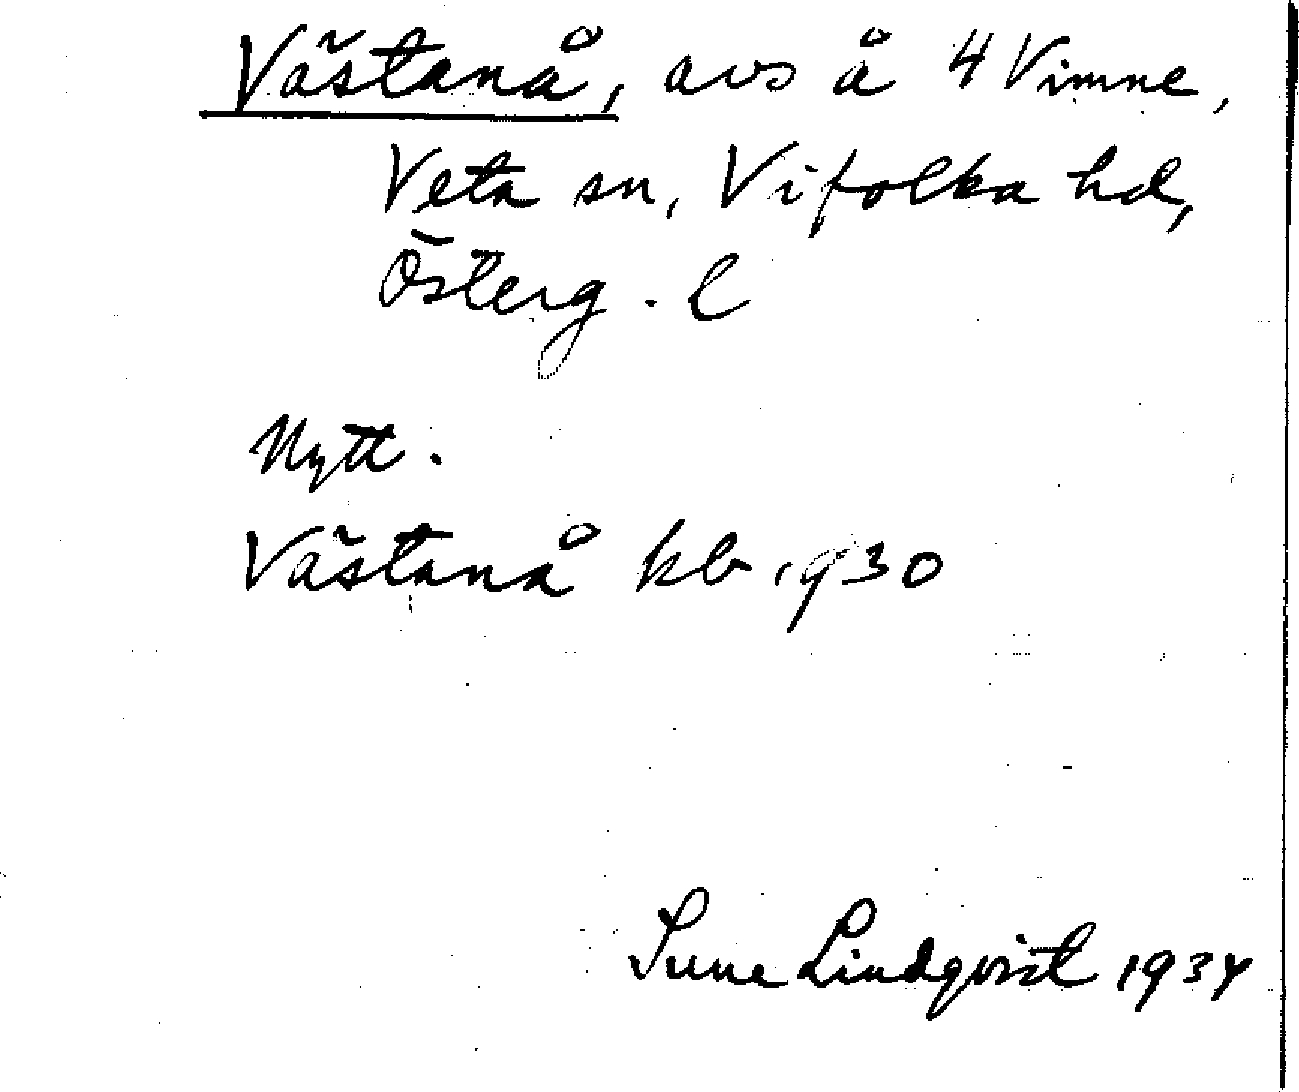 Västanå, avs å 4 Vimne,
Veta sn, Vifolka hd,
Österg. l
Nytt.
Västanå kb 1930
Sune Lindqvist 1934